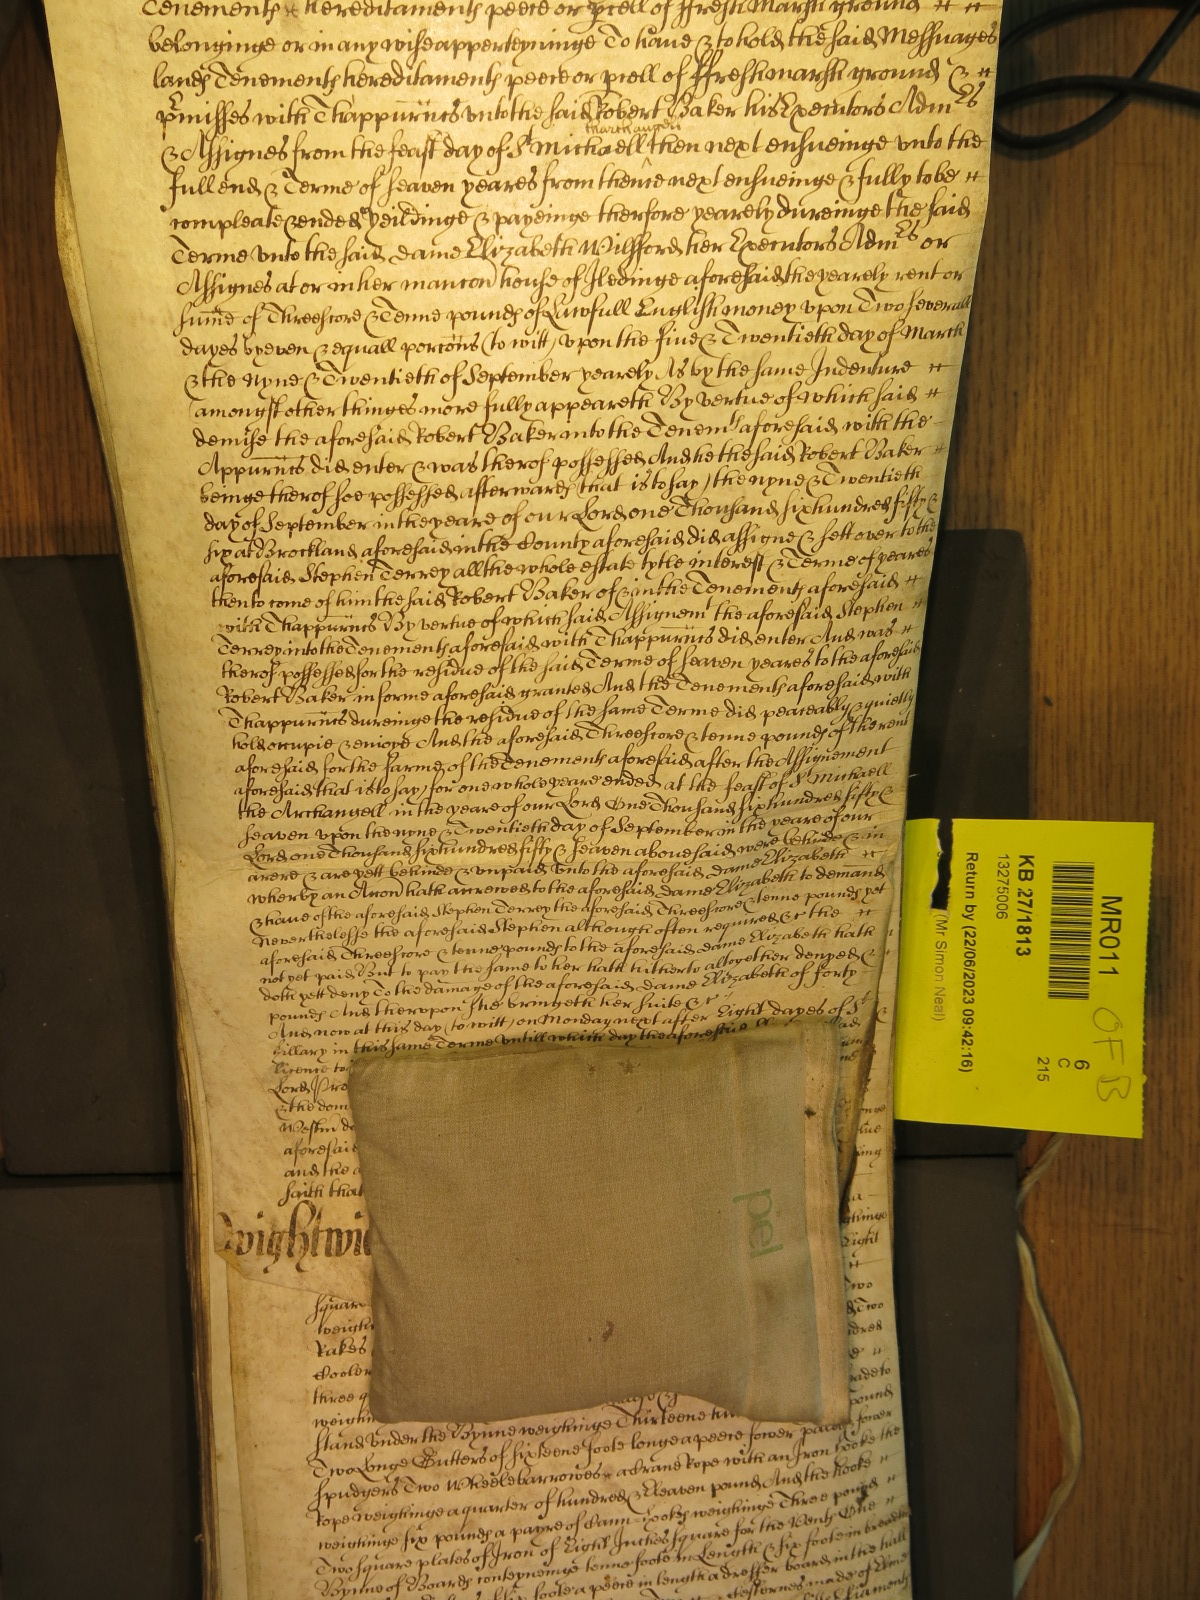 Tenements & hereditaments peece or pcell of ffresh Marsh ground
belonginge or in any wise apperteyninge To have & to hold the said Messuages
lands Tenements hereditaments peece or pcell of ffresh marsh ground &
pmisses with Thappurtn̄cs unto the said Robert Baker his Executors Admrs
Tharchangell
& Assignes from the feast day of St Michaell then next ensueinge unto the
full end & Terme of seaven yeares from thence next ensueinge & fully to be
compleate & ended yeildinge & payeinge therfore yearely dureinge the said
Terme unto the said dame Elizabeth Willford her Executors Admrs or
Assignes at or in her mancon house of Iledinge aforesaid the yearely rent or
sume of Threescore & Tenne pounds of Lawfull English money upon Two severall
dayes by even & equall porcons (to witt) upon the five & Twentieth day of March
& the nyne & Twentieth of September yearely As by the same Indenture
amongst other thinges more fully appeareth By vertue of which said
demise the aforesaid Robert Baker into the Tenemts aforesaid with the
Appurtn̄cs did enter & was therof possessed And he the said Robert Baker
beinge therof soe possessed afterwards (that is to say) the nyne & Twentieth
day of September in the yeare of our Lord one Thousand six hundred fifty &
six at Brockland aforesaid in the County aforesaid did assigne & sett over to the
aforesaid Stephen Terrey all the whole estate tytle interest & Terme of yeares
then to come of him the said Robert Baker of & in the Tenements aforesaid
with Thappurtn̄cs By vertue of which said Assignemt the aforesaid Stephen
Terrey into the Tenements aforesaid with Thappurtn̄cs did enter And was
therof possessed for the residue of the said Terme of seaven yeares to the aforesaid
Robert Baker in forme aforesaid granted And the Tenements aforesaid with
Thappurtn̄cs dureinge the residue of the same Terme did peaceably & quietly
hold occupie & enioye And the aforesaid Threescore & tenne pounds of the rent
aforesaid for the farme of the Tenements aforesaid after the Assignement
aforesaid (that is to say) for one whole yeare ended at the feast of St Michaell
the Archangell in the yeare of our Lord One Thousand six hundred fifty &
seaven upon the nyne & Twentieth day of September in the yeare of our
Lord one Thousand six hundred fifty & seaven abovesaid were behinde & in
arere & are yett behinde & unpaid unto the aforesaid dame Elizabeth
wherby an Accon hath accrewed to the aforesaid dame Elizabeth to demand
& have of the aforesaid Stephen Terrey the aforesaid Threescore & tenne pounds yet
Neverthelesse the aforesaid Stephen although often required &c the
aforesaid Threescore & tenne pounds to the aforesaid dame Elizabeth hath
not yet paid But to pay the same to her hath hitherto altogether denyed &
doth yett deny To the damage of the aforesaid dame Elizabeth of forty
pounds And thereupon she bringeth her suite &c
And now at this day (to witt) on Monday next after Eight dayes of St
Hillary in this same Terme untill which day the aforesaid
licence to
Lord
& the
Westm
aforesaid
and the
saith that
Wightwi
square
weighi
Rakes
three
weighin
stand under the Bynne weighinge Thirteene
Two Longe Gutters of sixteene foote longe a peece fower
spudgers Two Wheelebarrowes a Crane Rope with an Iron hooke the
Rope weighinge a quarter of hundred & Eleaven pounds And the hooke
weighinge six pounds a payre of Cann hookes weighinge Three pounds
Two square plates of Iron of Eight Inches square for the Vents One
Bynne of Boards conteyneinge tenne foote in Length & six foote in breadth
foote a peece in length a dresser board in the hall
made of
piel
MR011
OFB
6
C
215
KB 27/1813
13275006
Return by (22/06/2023 09:42:16)
(Mr Simon Neal)